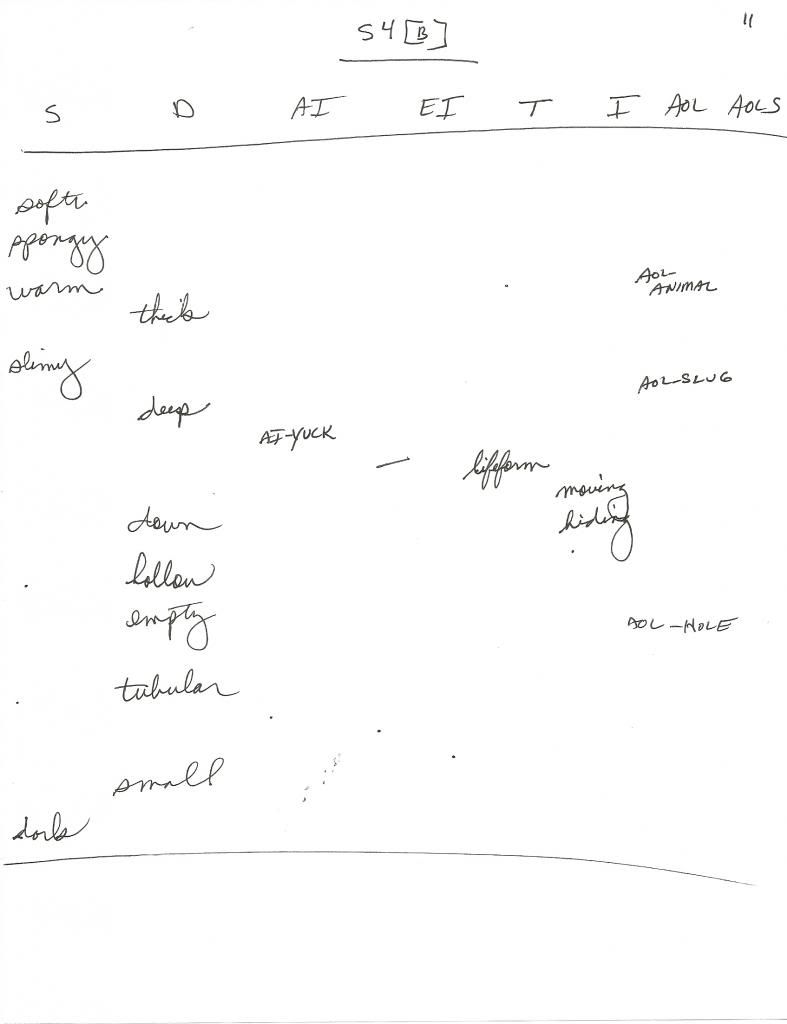 11
S4[B]
S D AI EI T I AOL AOLS
soft
spongy
warm
AOL-
ANIMAL
thick
slimy
AOL-SLUG
deep
AI-YUCK
— lifeform
moving
down
hiding
hollow
empty
AOL-HOLE
tubular
small
dark